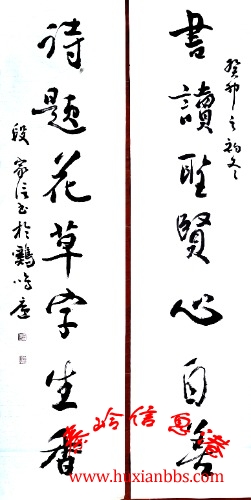 癸卯之初冬
書讀聖賢心自善
詩題花草字生香
段家信书於鷄鸣庐
www.huxianbbs.com